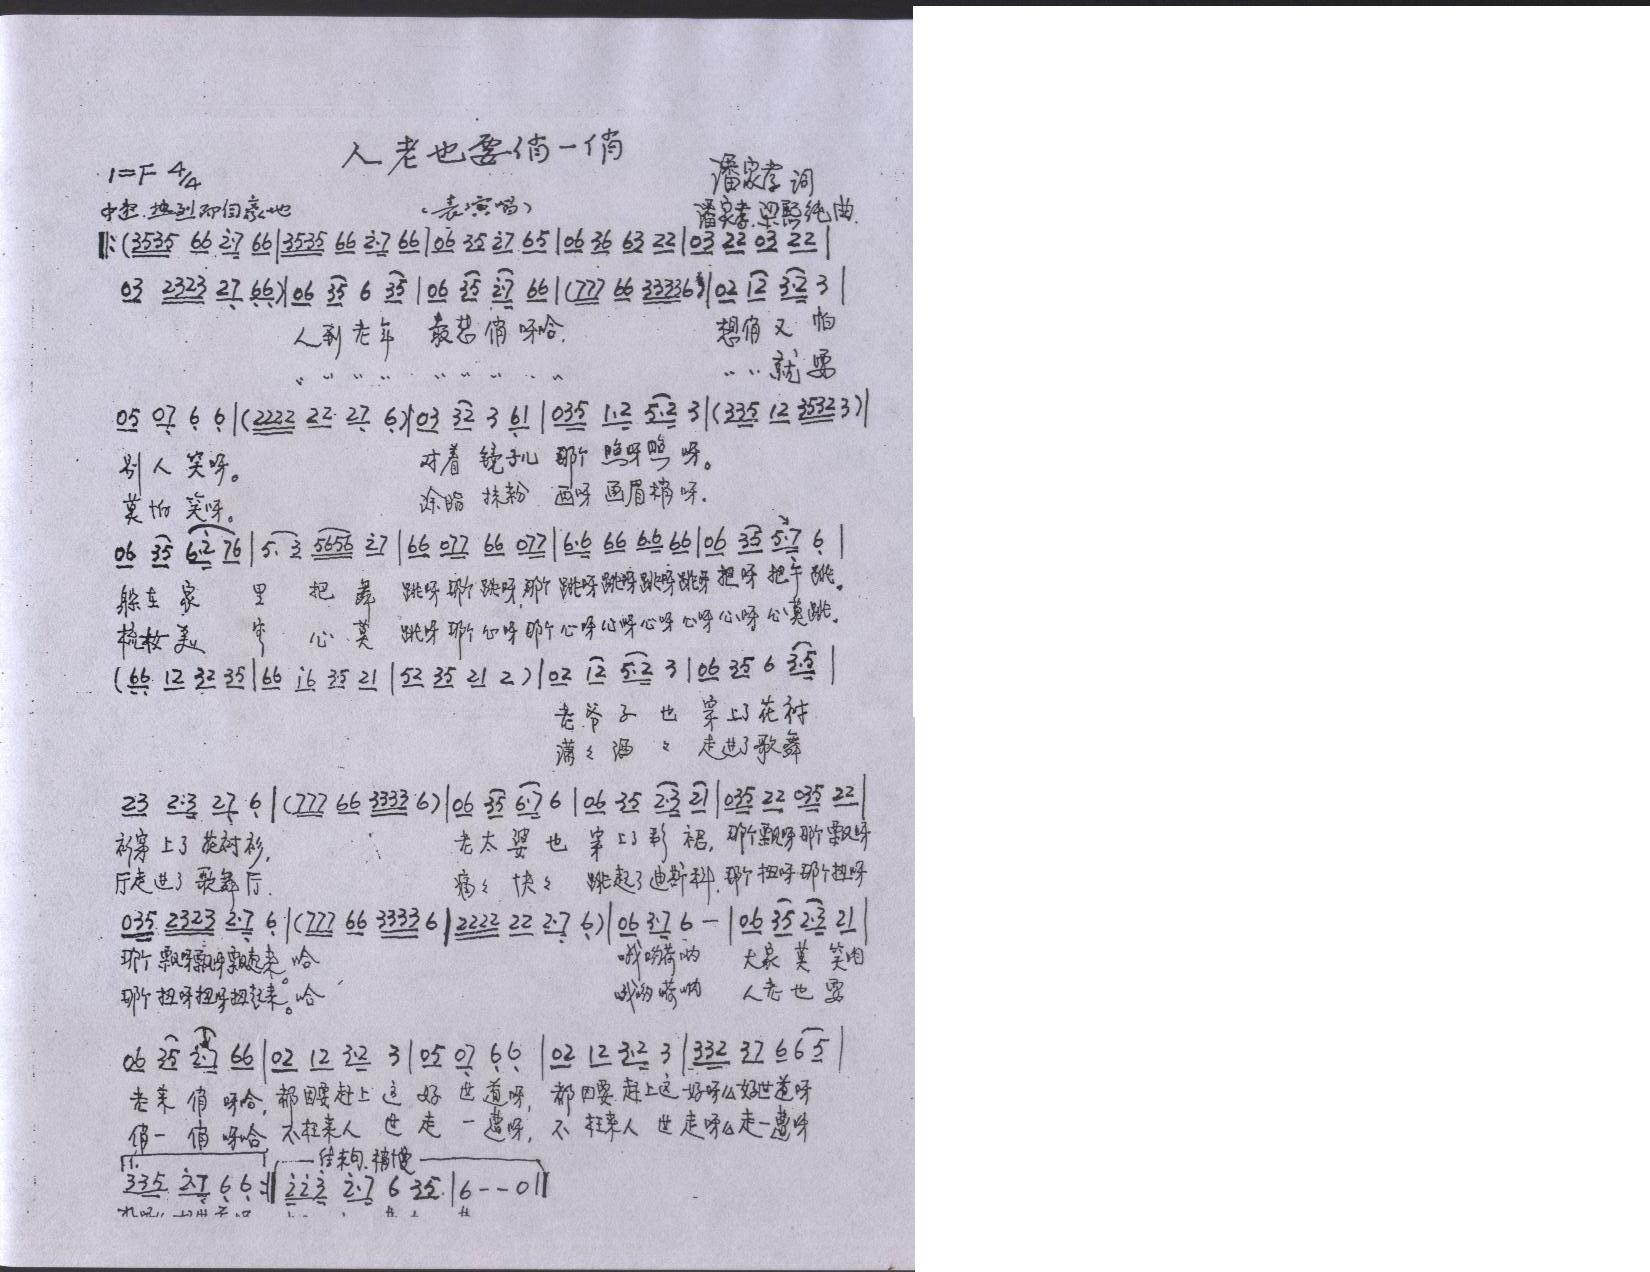 人老也要俏一俏
1=F 4/4
潘家孝 词
中速.热烈而自豪地
(表演唱)
潘家孝.梁 纯 曲.
‖:(3535 66 2·7 66|3535 66 2·7 66|06 35 27 65|06 36 63 22|03 22 03 22|
03 2323 27 66)|06 35 6 35|06 35 2·7 66|(777 66 33336)|02 12 3·2 3|
人到老年 最想俏呀哈. 想俏又怕
〃 〃 〃 〃 〃 〃 〃 〃 〃 〃 〃 就要
05 07 6 6|(2222 22 27 6)|03 32 3 61|035 1·2 5·2 3|(335 12 35323)|
别人笑呀。 对着镜子儿 那个照呀照呀。
莫怕笑呀。 涂脂抹粉 画呀画眉梢呀.
06 35 6·2 76|5· 3 5656 27|66 077 66 077|6·6 66 6·6 66|06 35 5·7 6|
躲在家里把舞 跳呀那个跳呀,那个跳呀跳呀跳呀跳呀把呀把午跳。
梳妆美 心莫 跳呀那个心呀那个心呀心呀心呀心呀心呀心莫跳.
(66 12 32 35|66 i6 35 21|52 35 21 2)|02 12 5·2 3|06 35 6 3·5|
老爷子也穿上了花衬
潇々洒々走进了歌舞
23 2·3 27 6|(777 66 3333 6)|06 35 6·7 6|06 35 2·3 21|035 22 035 22|
衫穿上了花衬衫, 老太婆也穿上了彩裙,那个飘呀那个飘呀
厅走进了歌舞厅. 痛々快々跳起了迪斯科,那个扭呀那个扭呀
035 2323 2·7 6|(777 66 3333 6|2222 22 2·7 6)|06 3·7 6 —|06 35 2·3 21|
那个飘呀飘呀飘起来。哈 哦哟荷呐 大家莫笑咱
那个扭呀扭呀扭起来。哈 哦哟荷呐 人老也要
06 35 2·7 66|02 12 3·2 3|05 07 6 6|02 12 3·2 3|332 37 6 65|
老来俏呀哈,都因要赶上这好世道呀,都因要赶上这好呀么好世道呀
俏一俏呀哈 不枉来人世走一遭呀,不枉来人世走呀么走一遭呀
1. 结束句.稍慢
335 2·7 6 6:‖ 223 2·7 6 35|6 - - 0‖